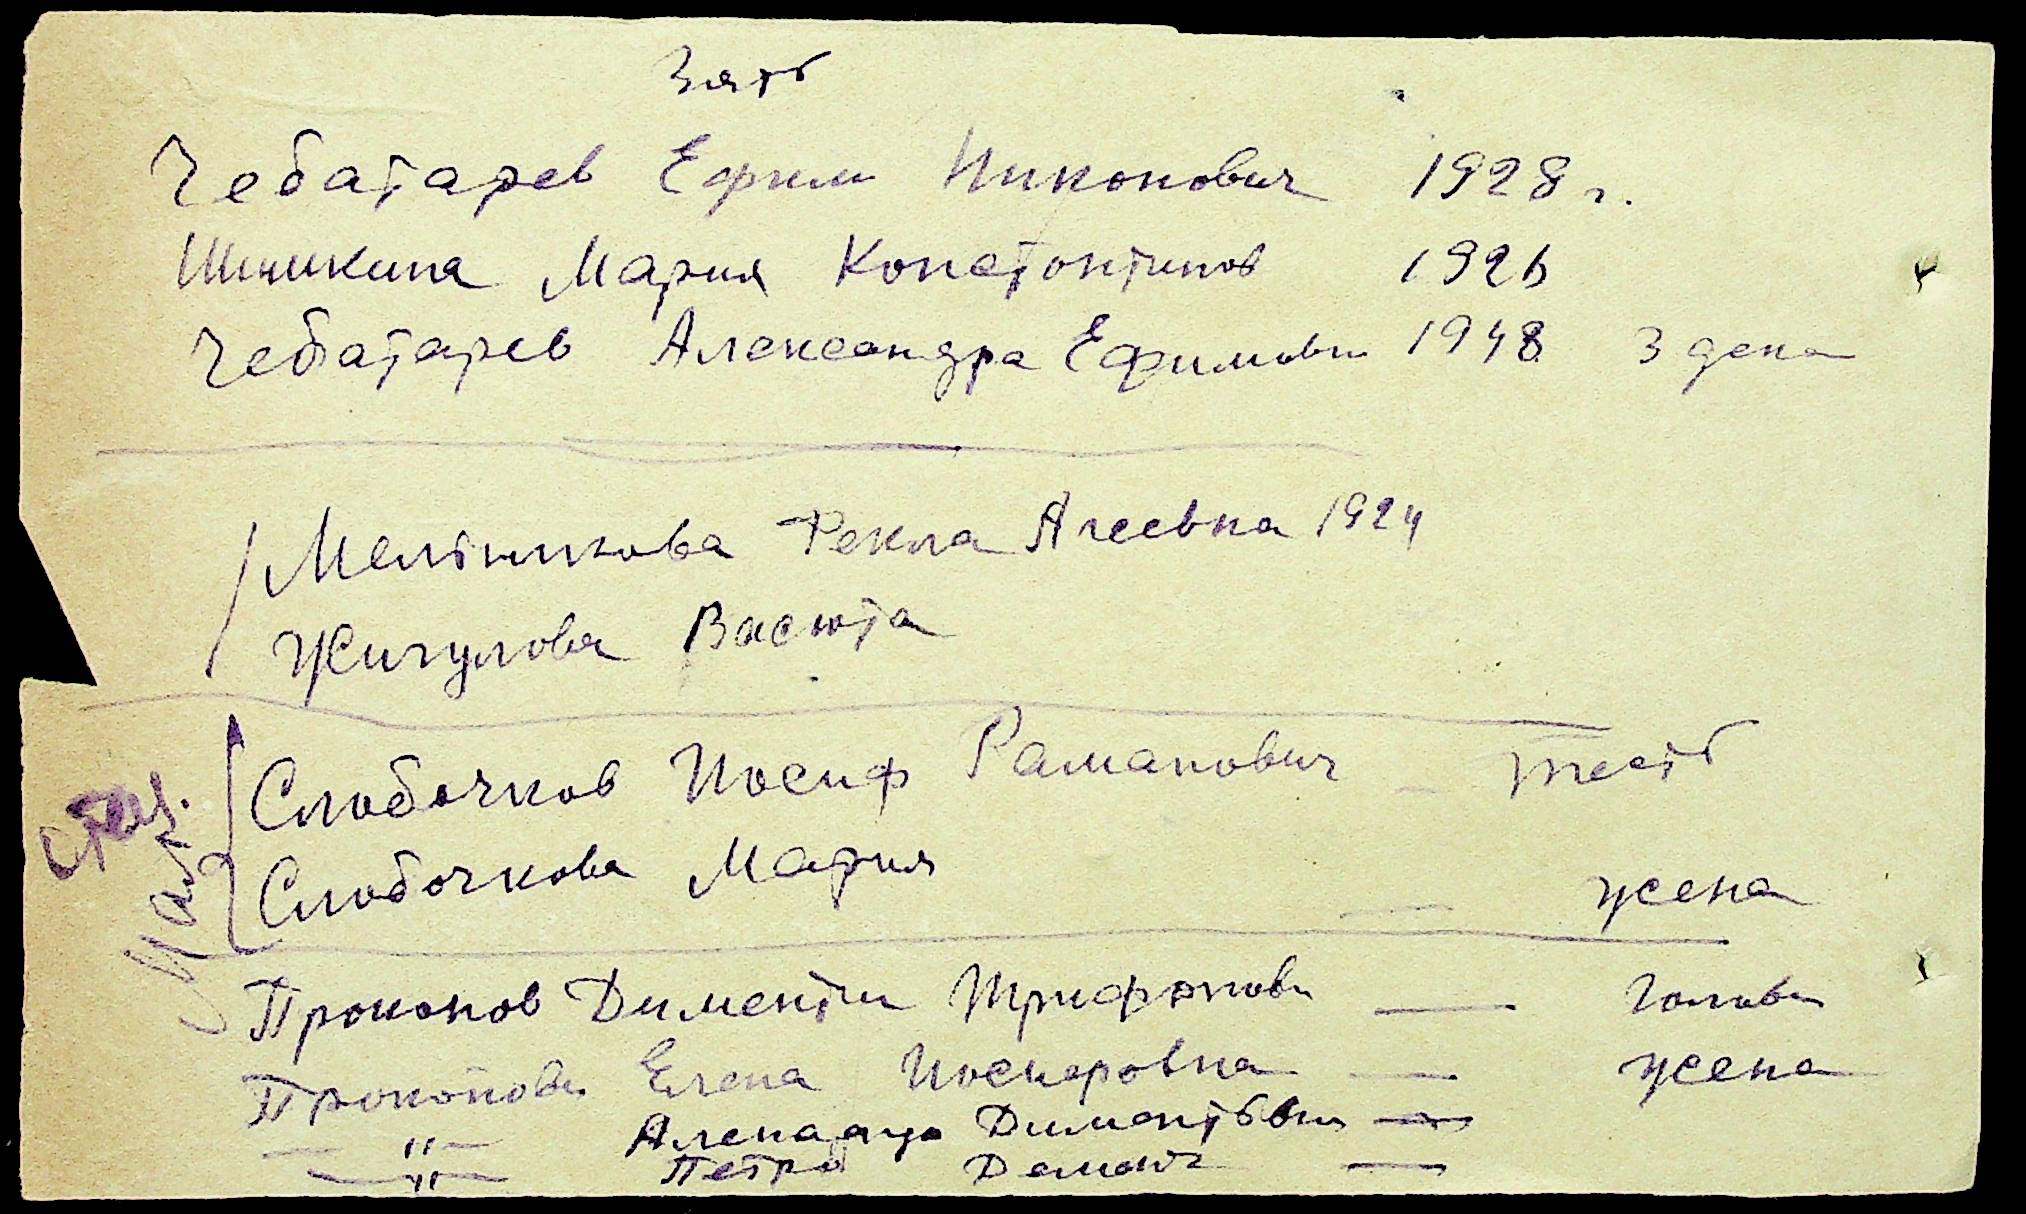 Зять
Чебатарев Ефим Никонович 1928 г.
Шишкина Мария Констонтинов 1926
Чебатарев Александра Ефимовн 1948 3 дена
Мельникова Фекла Агеевна 1924
Жигулова Васюта
Слободчков Иосиф Раманович – тесть
Слободчкова Мария — жена
Проконов Дименти Трифонови — голова
Проконова Елена Иосиеровна — жена
— " — Дименть —
— " — Петро —